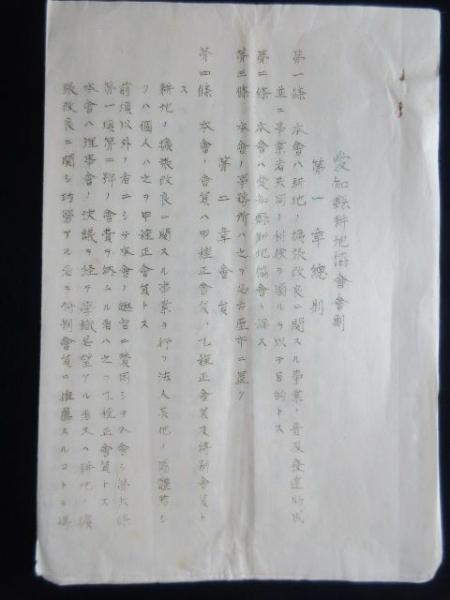 愛知縣耕地協會會則
第一章 總則
第一條 本會ハ耕地ノ擴張改良ニ關スル事業ノ普及發達助成
並ニ事業者共同ノ利益ヲ圖ルヲ以テ目的トス
第二條 本會ハ愛知縣耕地協會ト謂フ
第三條 本會ノ事務所ハ之ヲ名古屋市ニ置ク
第二章 會員
第四條 本會ノ會員ハ甲種正會員、乙種正會員及特別會員ト
ス
耕地ノ擴張改良ニ關スル事業ヲ行フ法人其他ノ團體若シ
クハ個人ハ之ヲ甲種正會員トス
前項以外ノ者ニシテ本會ノ趣旨ニ賛同シテ入會シ第六條
第一項第二號ノ會費ヲ納ムル者ハ之ヲ乙種正會員トス
本會ハ理事會ノ決議ヲ經テ學識名望アル者又ハ耕地ノ擴
張改良ニ關シ功勞アル者ヲ特別會員ニ推薦スルコトヲ得